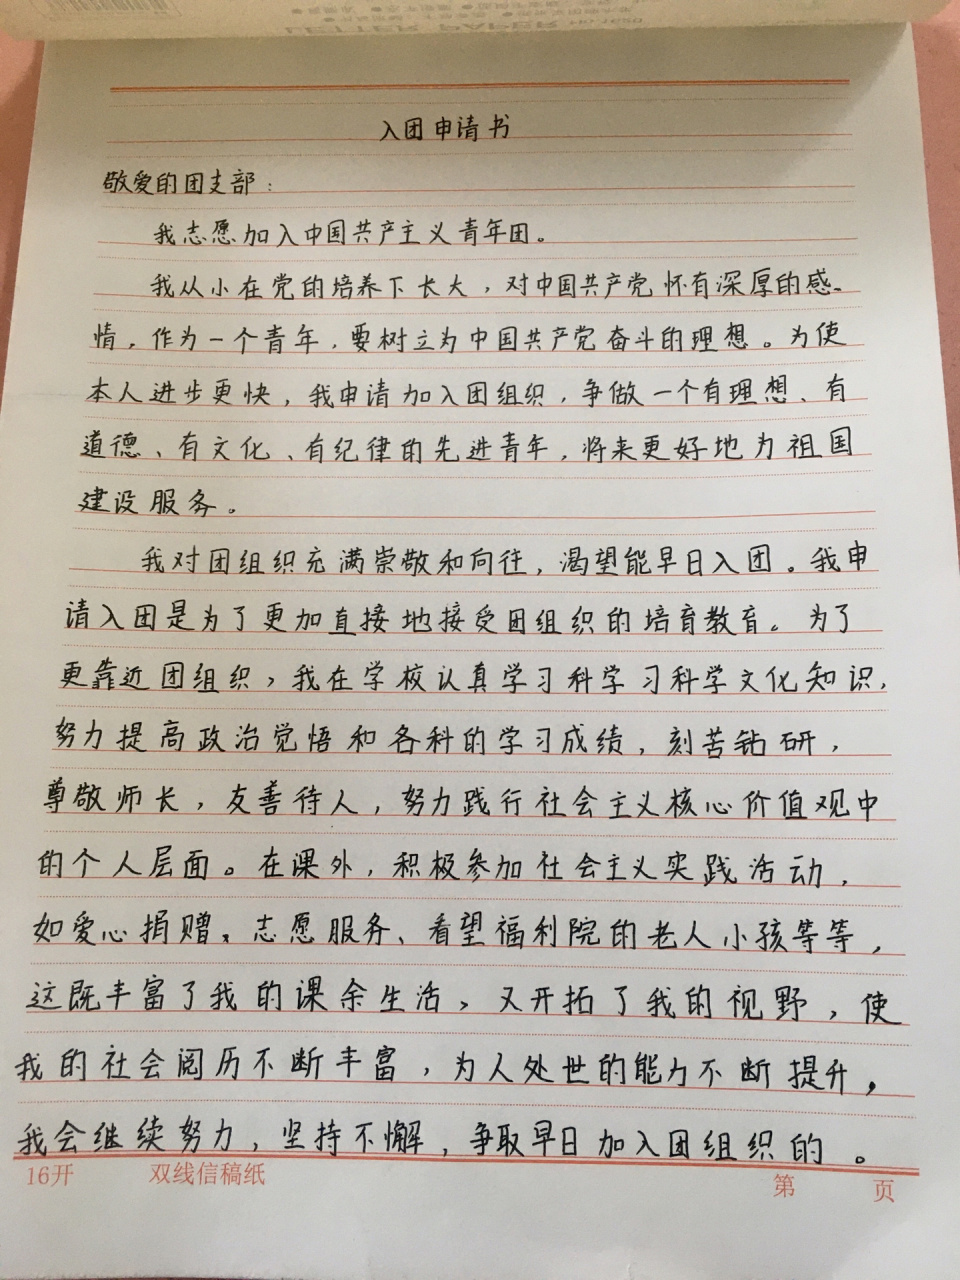 LETTER PAPER
入团申请书
敬爱的团支部：
我志愿加入中国共产主义青年团。
我从小在党的培养下长大，对中国共产党怀有深厚的感
情，作为一个青年，要树立为中国共产党奋斗的理想。为使
本人进步更快，我申请加入团组织，争做一个有理想、有
道德、有文化、有纪律的先进青年，将来更好地为祖国
建设服务。
我对团组织充满崇敬和向往，渴望能早日入团。我申
请入团是为了更加直接地接受团组织的培育教育。为了
更靠近团组织，我在学校认真学习科学习科学文化知识，
努力提高政治觉悟和各科的学习成绩，刻苦钻研，
尊敬师长，友善待人，努力践行社会主义核心价值观中
的个人层面。在课外，积极参加社会主义实践活动，
如爱心捐赠、志愿服务、看望福利院的老人小孩等等，
这既丰富了我的课余生活，又开拓了我的视野，使
我的社会阅历不断丰富，为人处世的能力不断提升，
我会继续努力，坚持不懈，争取早日加入团组织的。
16开 双线信稿纸 第 页